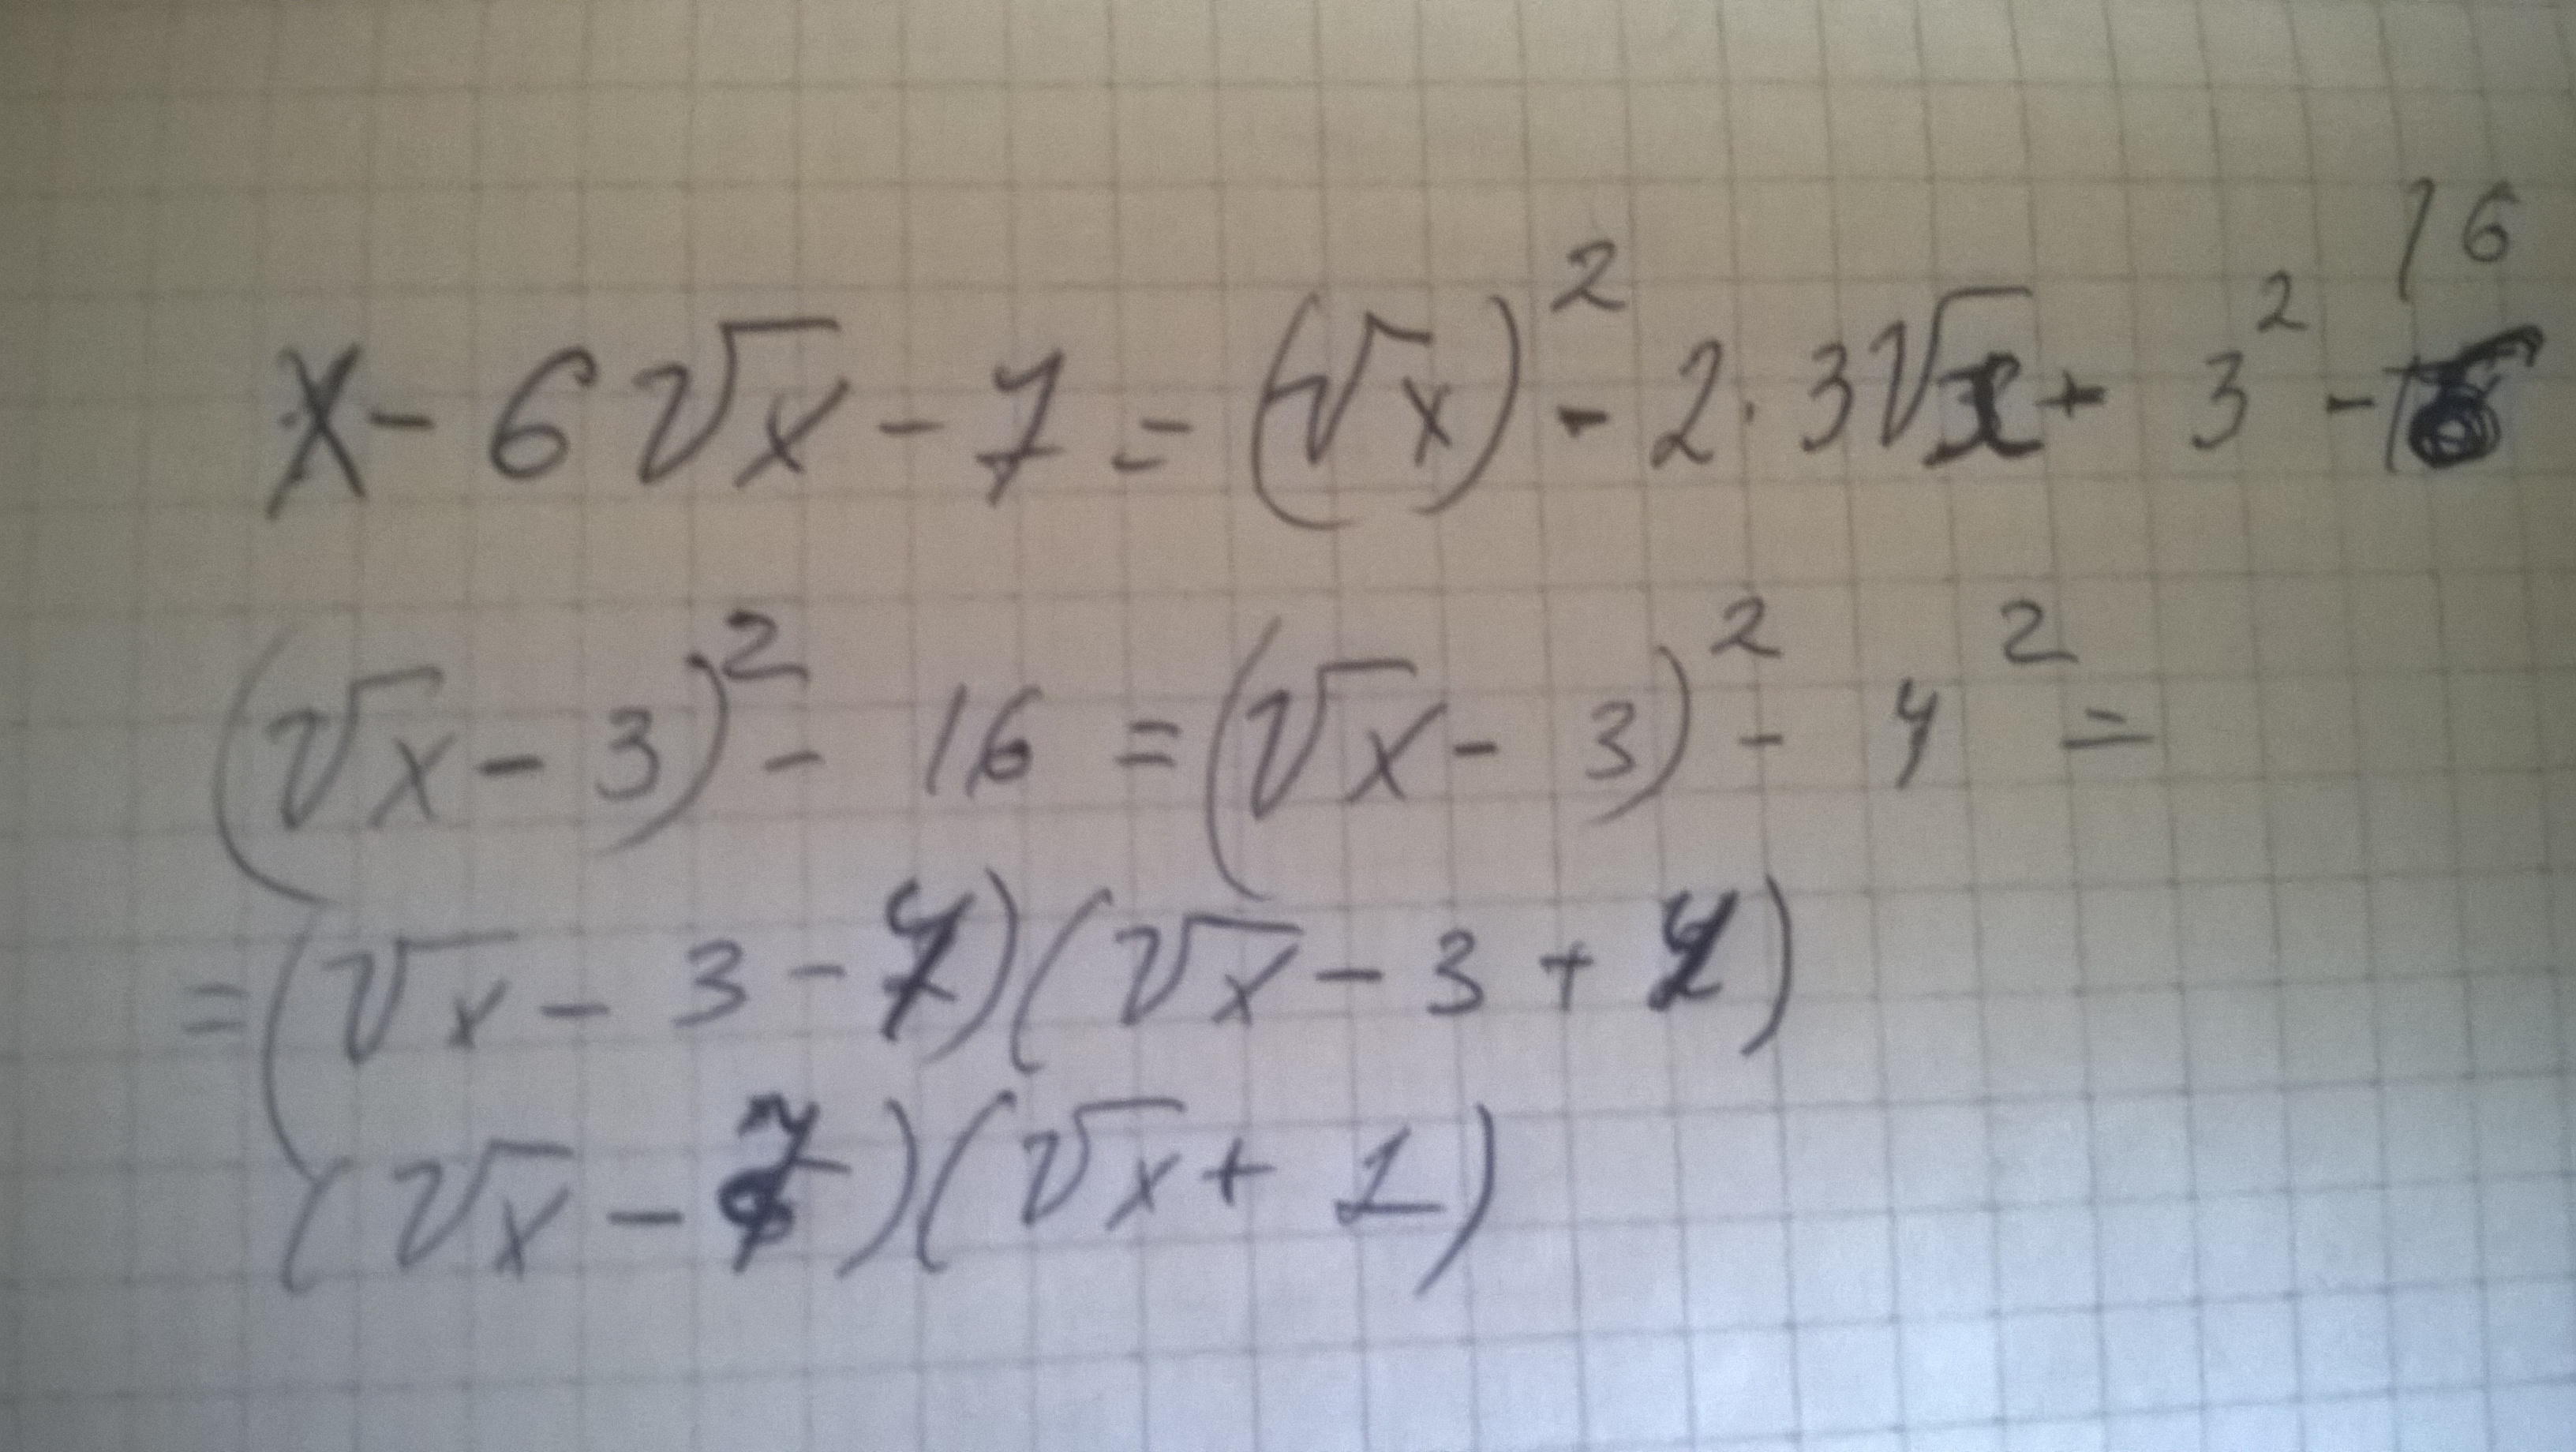 x - 6√x - 7 = (√x)² - 2·3√x + 3² - 16
(√x - 3)² - 16 = (√x - 3)² - 4² =
= (√x - 3 - 4)(√x - 3 + 4)
(√x - 7)(√x + 1)